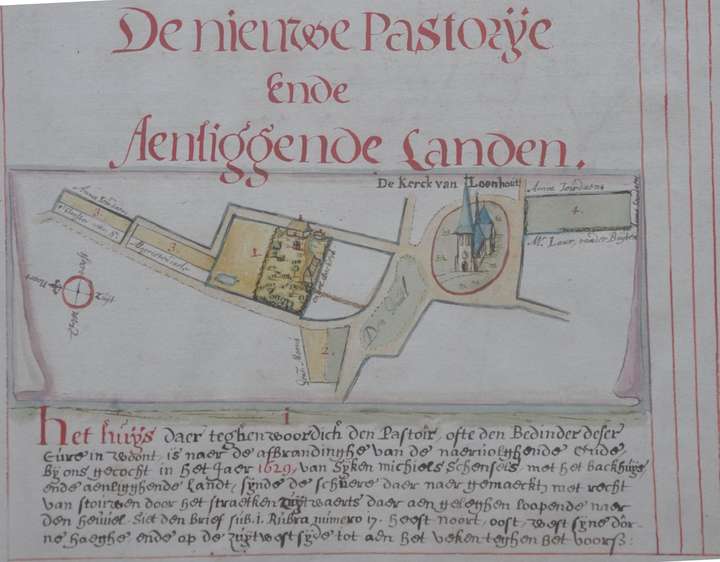 De nieuwe Pastorÿe
Ende
Aenliggende Landen.
De Kerck van Loenhout
Anna Jordaens
4.
3.
3.
1.
2.
Noort
Oost
Zuÿt
West
I
Het huÿs daer teghenwoordich den Pastoir, ofte den Bedinder deser
Cure in woont, is naer de afbrandinghe van de naervolghende Oude,
Bÿ ons gecocht in het Jaer 1629, van Sÿken michiels Schensels, met het backhuÿs
ende aenligghende landt, sÿnde de schuere daer naer gemaeckt, met recht
van stouwen door het straetken Zuÿtwaerts daer aen geleghen loopende naer
den heuvel. Siet den Brief sub. 1. Rubra numero 17. heeft noort, oost, west sÿne dor-
ne haeghe ende op de Zuÿtwestsÿde tot aen het veken teghen het voors: